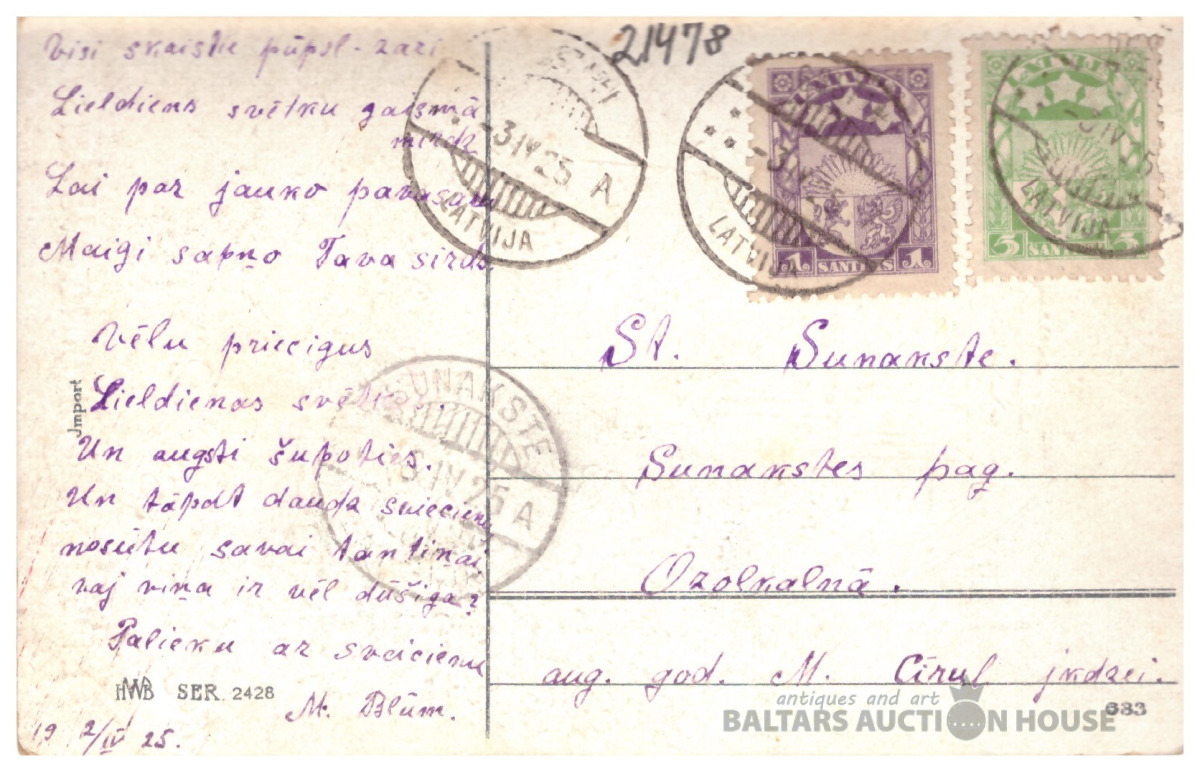 Visi skaistu pūpol-zari
Lieldiens svētku gaismā
mirdz
Lai par jauko pavasari
Maigi sapņo Tava sirds
Vēlu priecigus
Lieldienas
Un augsti šūpoties.
Un tāpat daudz sveicienu
nosūtu savai tantiņai
vaj viņa ir vēl dūšiga?
Palieku ar sveicienu
M. Blūm.
19 2/IV 25.
Jmport
HWB SER. 2428
21478
-3 IV 25 A
LATVIJA
-3 IV
LATVIJA
LATVIJA
1 SANTIMS 1
LATVIJA
3 SANTIMI 3
LATVIJA
SUNAKSTE
IV 25 A
St. Sunakste.
Sunakstes pag.
Ozolkalnā.
aug. god. M. Cīrul jkdzei.
683
antiques and art
BALTARS AUCTION HOUSE